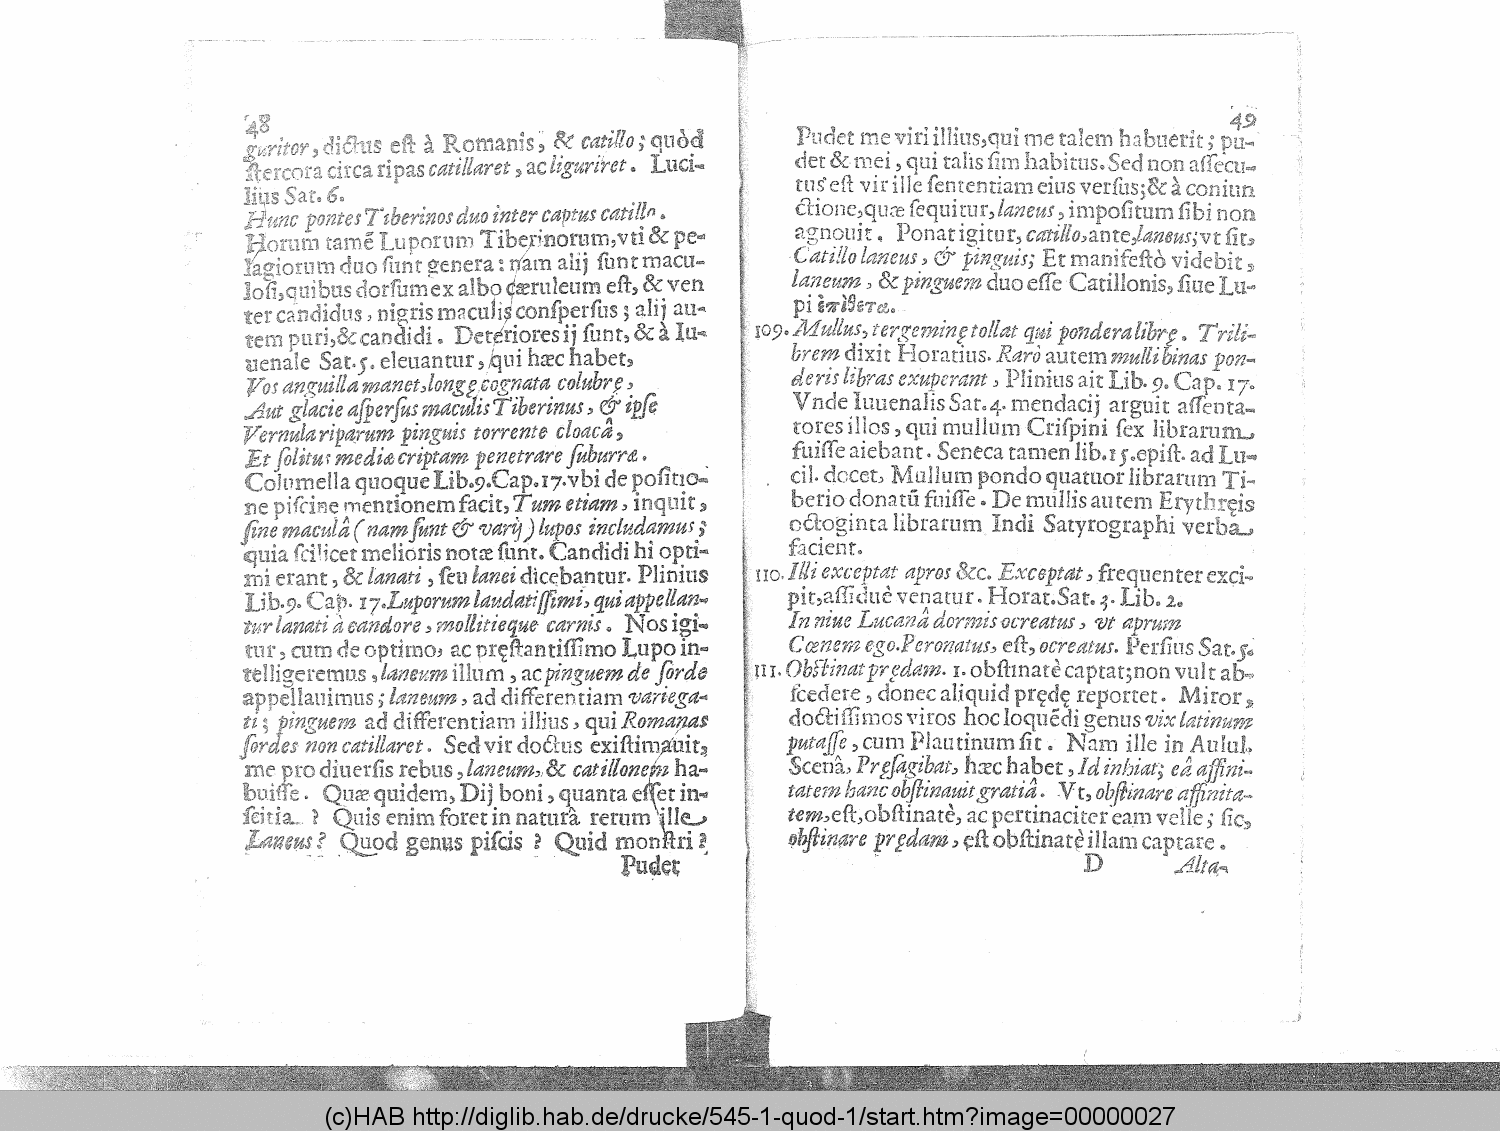 48
guritor, dictus eſt à Romanis, & catillo; quòd
ſtercora circa ripas catillaret, ac liguriret. Luci-
lius Sat. 6.
Hunc pontes Tiberinos duo inter captus catillo.
Horum tamē Luporum Tiberinorum, vti & pe-
lagiorum duo ſunt genera: nam alij ſunt macu-
loſi, quibus dorſum ex albo cæruleum eſt, & ven
ter candidus, nigris maculis conſperſus; alij au-
tem puri, & candidi. Deteriores ij ſunt, & à Iu-
uenale Sat. 5. eleuantur, qui hæc habet,
Vos anguilla manet, longę cognata colubrę,
Aut glacie aſperſus maculis Tiberinus, & ipſe
Vernula riparum pinguis torrente cloacâ,
Et ſolitus mediæ criptam penetrare ſuburræ.
Columella quoque Lib. 9. Cap. 17. vbi de poſitio-
ne piſcinę mentionem facit, Tum etiam, inquit,
ſine maculâ (nam ſunt & varij) lupos includamus;
quia ſcilicet melioris notæ ſunt. Candidi hi opti-
mi erant, & lanati, ſeu lanei dicebantur. Plinius
Lib. 9. Cap. 17. Luporum laudatiſſimi, qui appellan-
tur lanati à candore, mollitieque carnis. Nos igi-
tur, cum de optimo, ac pręſtantiſſimo Lupo in-
telligeremus, laneum illum, ac pinguem de ſorde
appellauimus; laneum, ad differentiam variega-
ti; pinguem ad differentiam illius, qui Romanas
ſordes non catillaret. Sed vir doctus exiſtimauit,
me pro diuerſis rebus, laneum, & catillonem ha-
buiſſe. Quæ quidem, Dij boni, quanta eſſet in-
ſcitia? Quis enim foret in naturâ rerum ille
Laneus? Quod genus piſcis? Quid monſtri?
Pudet
49
Pudet me viri illius, qui me talem habuerit; pu-
det & mei, qui talis ſim habitus. Sed non aſſecu-
tus eſt vir ille ſententiam eius verſus; & à coniun
ctione, quæ ſequitur, laneus, impoſitum ſibi non
agnouit. Ponat igitur, catillo, ante, laneus; vt ſit,
Catillo laneus, & pinguis; Et manifeſtò videbit,
laneum, & pinguem duo eſſe Catillonis, ſiue Lu-
pi ἐπίθετα.
109. Mullus, tergeminę tollat qui pondera librę. Trili-
brem dixit Horatius. Rarò autem mulli binas pon-
deris libras exuperant, Plinius ait Lib. 9. Cap. 17.
Vnde Iuuenalis Sat. 4. mendacij arguit aſſenta-
tores illos, qui mullum Criſpini ſex librarum
fuiſſe aiebant. Seneca tamen lib. 15. epiſt. ad Lu-
cil. docet, Mullum pondo quatuor librarum Ti-
berio donatū fuiſſe. De mullis autem Erythręis
octoginta librarum Indi Satyrographi verba
facient.
110. Illi exceptat apros &c. Exceptat, frequenter exci-
pit, aſſiduè venatur. Horat. Sat. 3. Lib. 2.
In niue Lucanâ dormis ocreatus, vt aprum
Cœnem ego. Peronatus, eſt, ocreatus. Perſius Sat. 5.
111. Obſtinat prędam. 1. obſtinatè captat; non vult ab-
ſcedere, donec aliquid prędę reportet. Miror,
doctiſſimos viros hoc loquēdi genus vix latinum
putaſſe, cum Plautinum ſit. Nam ille in Aulul.
Scenâ, Pręſagibat, hæc habet, Id inhiat; eâ affini-
tatem hanc obſtinauit gratiâ. Vt, obſtinare affinita-
tem, eſt, obſtinatè, ac pertinaciter eam velle; ſic,
obſtinare prędam, eſt obſtinatè illam captare.
D Alta-
(c)HAB http://diglib.hab.de/drucke/545-1-quod-1/start.htm?image=00000027